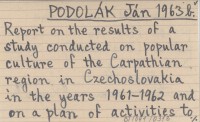 PODOLÁK Ján 1963 b.
Report on the results of a
study conducted on popular
culture of the Carpathian
region in Czechoslovakia
in the years 1961-1962 and
on a plan of activities to